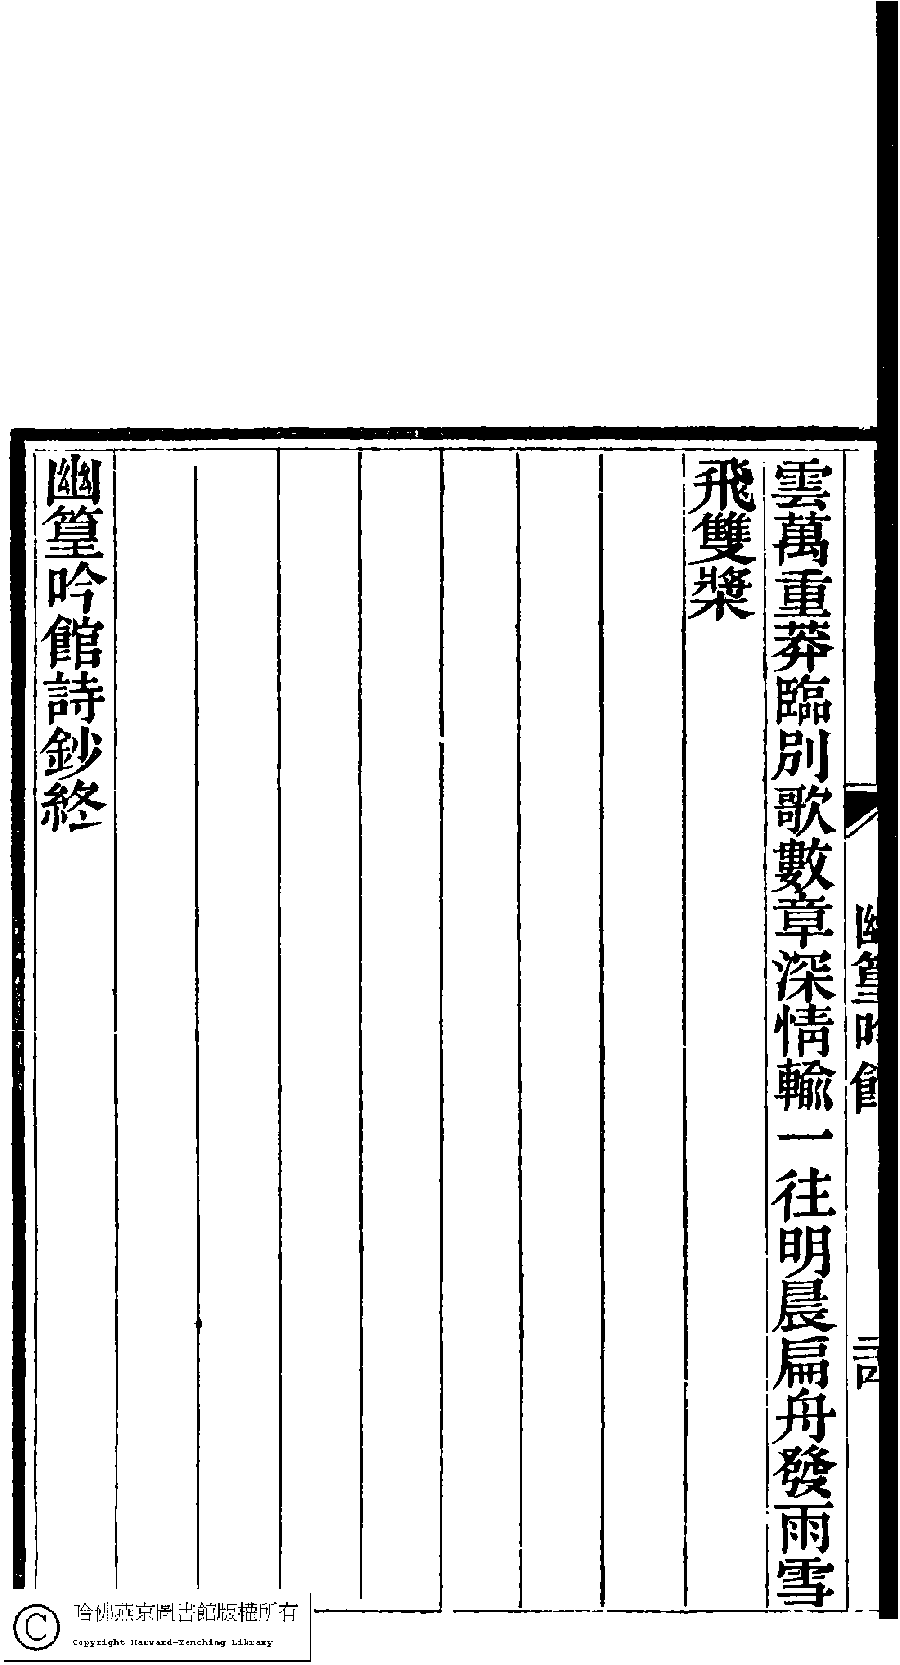 雲萬重莽臨別歌數章深情輸一往明晨扁舟發雨雪
飛雙槳
幽篁吟館詩鈔終
幽篁吟館
哈佛燕京圖書館版權所有
Copyright Harvard-Yenching Library